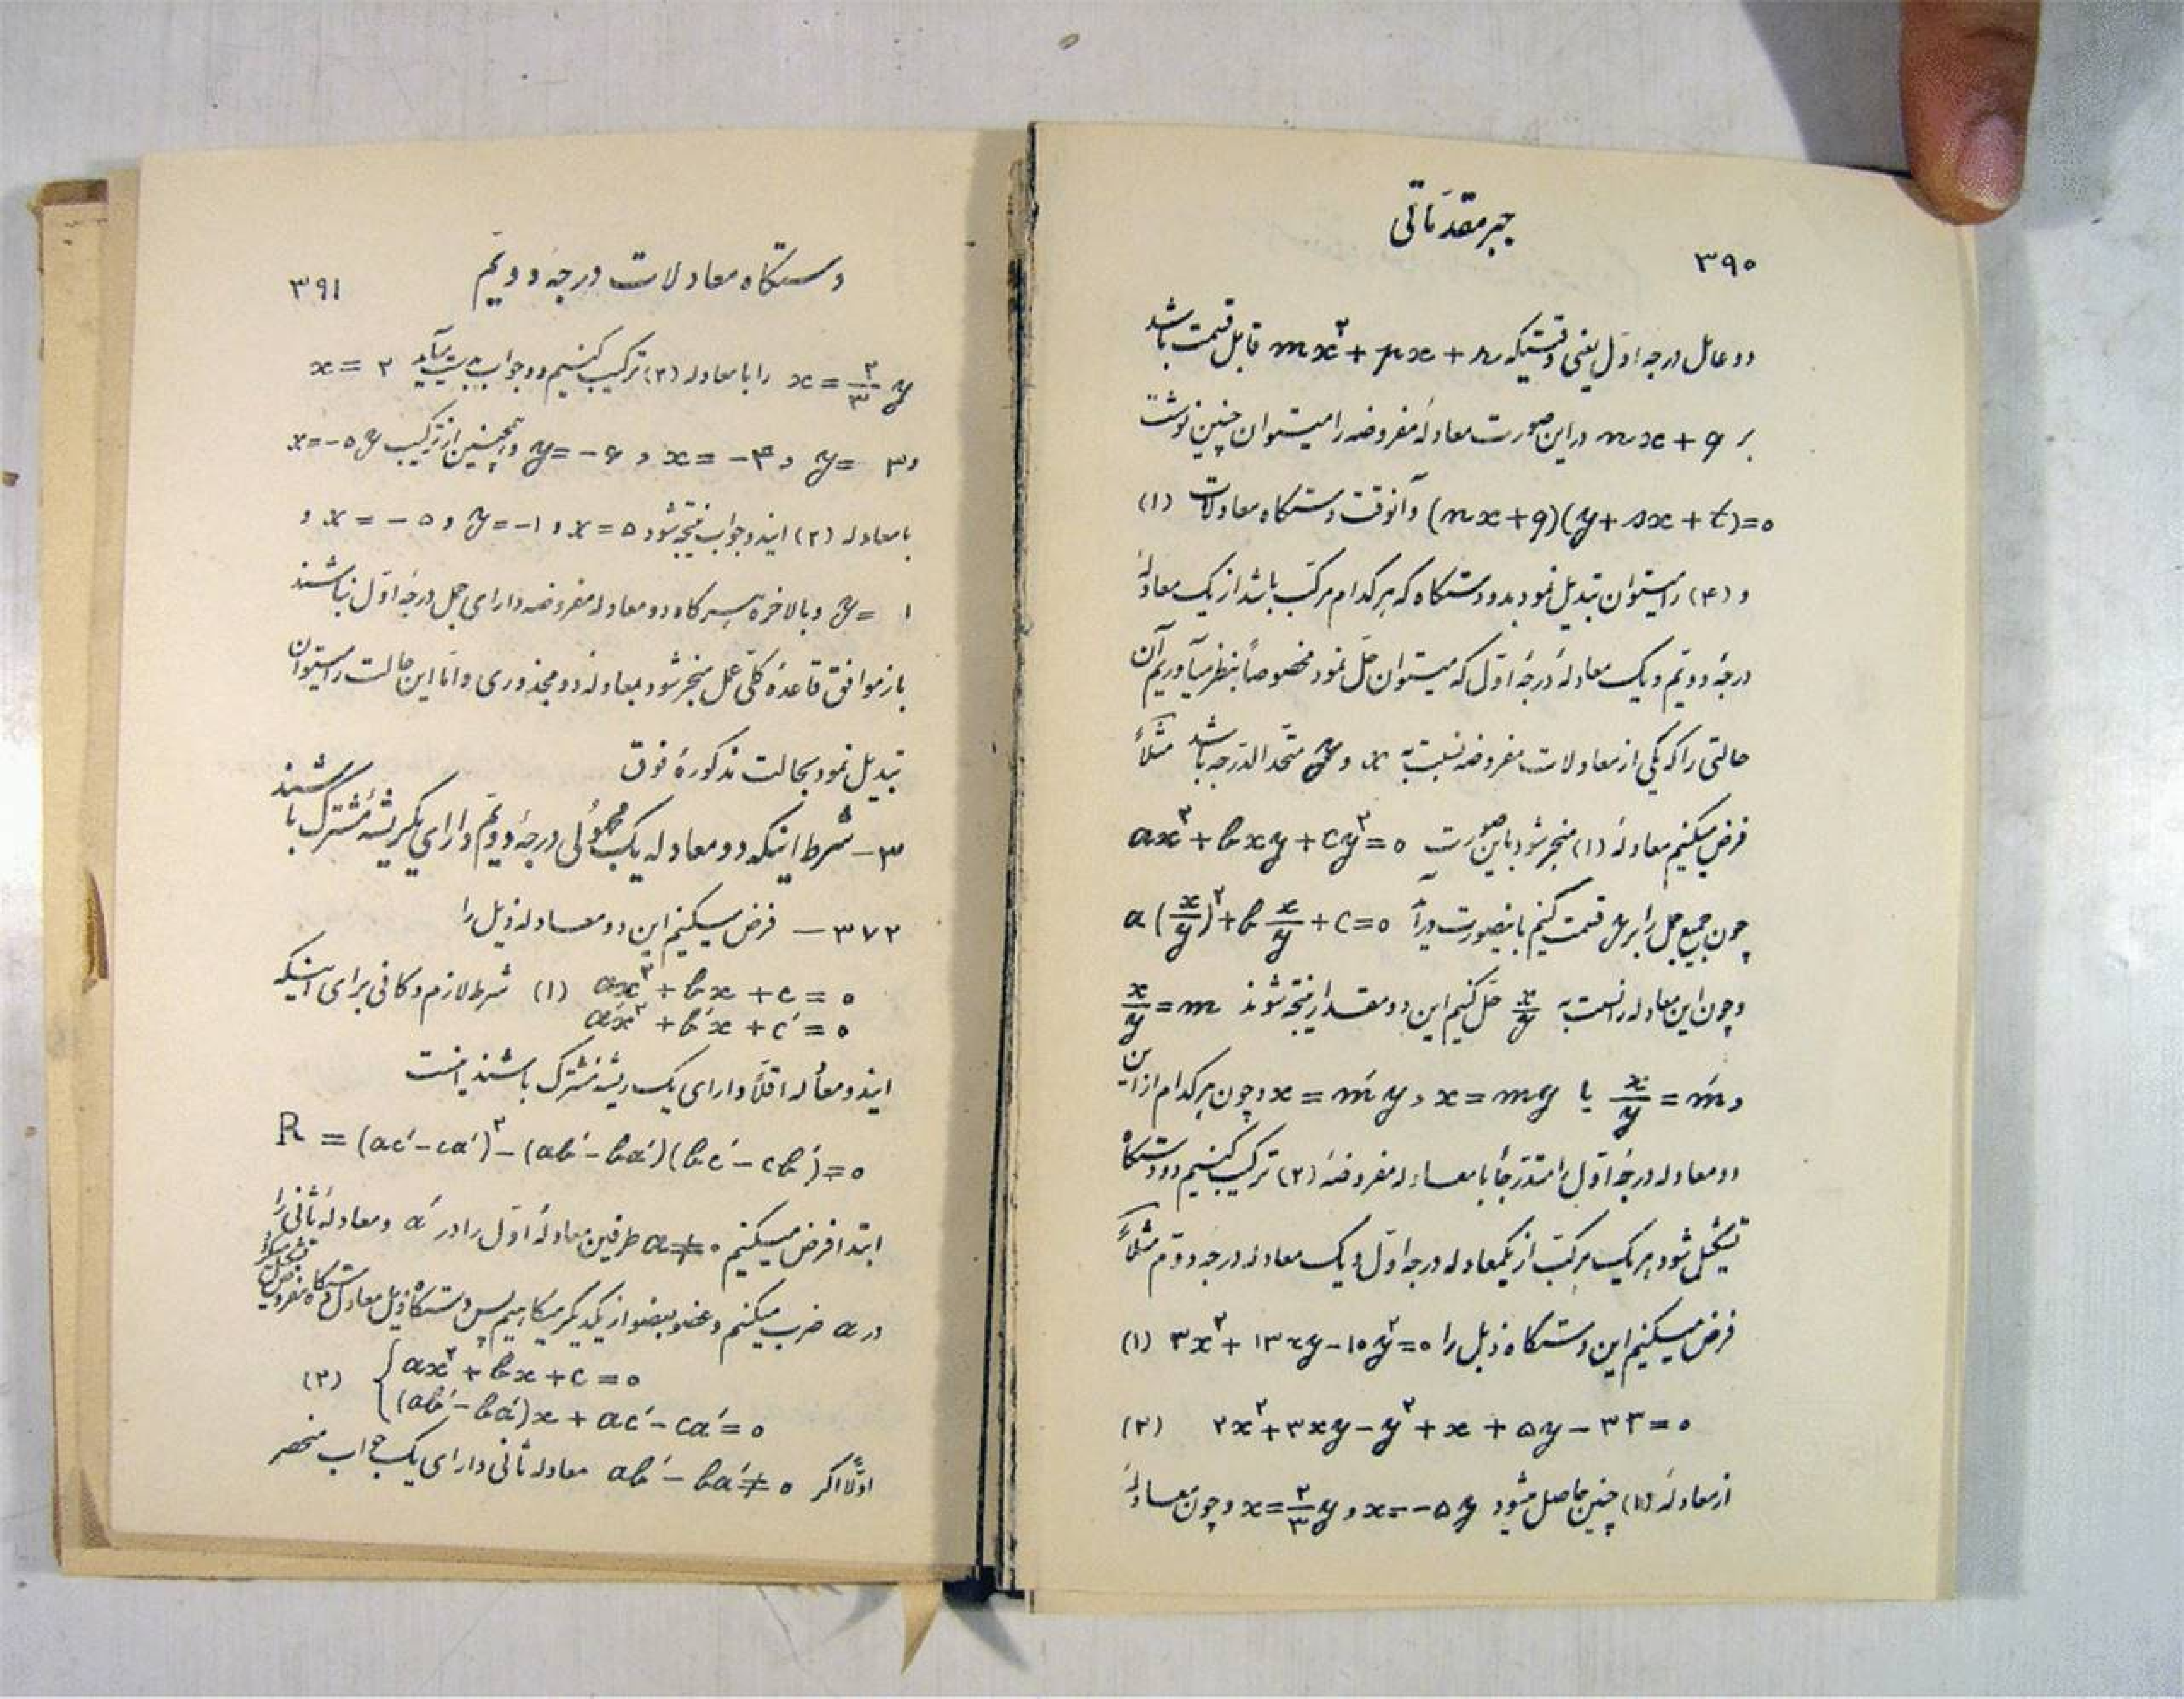 جبر مقدّماتی
۳۹۰
دو عامل درجه اوّل یعنی وقتیکه mx² + px + r قابل قسمت باشد
بر nx + q در این صورت معادلهٔ مفروضه را میتوان چنین نوشت
(nx+q)(y+sx+t)=۰ و آنوقت دستگاه معادلات (۱)
و (۲) را میتوان تبدیل نمود بدو دستگاه که هر کدام مرکّب باشد از یک معادلهٔ
درجهٔ دویّم و یک معادلهٔ درجهٔ اوّل که میتوان حلّ نمود مخصوصاً بنظر میآوریم آن
حالتی را که یکی از معادلات مفروضه نسبت به x و y متّحد الدّرجه باشد مثلاً
فرض میکنیم معادلهٔ (۱) منجر شود باین صورت ax² + bxy + cy² = ۰
چون جمیع جمل را بر y² قسمت کنیم باینصورت درآید a(x/y)² + b x/y + c = ۰
و چون این معادله را نسبت به x/y حلّ کنیم این دو مقدار نتیجه شوند x/y = m
و x/y = m′ یا x = my و x = m′y و چون هر کدام از این
دو معادله درجهٔ اوّل را متدرّجاً با معادله مفروضهٔ (۲) ترکیب کنیم دو دستگاه
تشکیل شود هر یک مرکّب از یکمعادله درجه اوّل و یک معادله درجه دوّم مثلاً
فرض میکنیم این دستگاه ذیل را ۳x² + ۱۳xy - ۱۰y² = ۰ (۱)
۲x² + ۳xy - y² + x + ۵y - ۳۲ = ۰ (۲)
از معادلهٔ (۱) چنین حاصل میشود x = -۵y و x = ۲/۳ y و چون معادلهٔ
دستگاه معادلات درجهٔ دویّم
۳۹۱
x = ۲/۳ y را با معادله (۲) ترکیب کنیم دو جواب بدست میآید x = ۲
و y = ۳ و x = -۴ و y = -۶ و همچنین از ترکیب x = -۵y
با معادله (۲) ایندو جواب نتیجه شود x = ۵ و y = -۱ و x = -۵ و
y = ۱ و بالاخره هر گاه دو معادله مفروضه دارای جمل درجهٔ اوّل نباشند
باز موافق قاعدهٔ کلّی عمل منجر شود بمعادلهٔ دو مجذوری و امّا این حالت را میتوان
تبدیل نمود بحالت مذکورهٔ فوق
۳ - شرط اینکه دو معادله یک مجهولی درجهٔ دویّم دارای یکریشهٔ مشترک باشند
۳۷۲ - فرض میکنیم این دو معادله ذیل را
ax² + bx + c = ۰ (۱) شرط لازم و کافی برای اینکه
a′x² + b′x + c′ = ۰
ایندو معادله اقلّاً دارای یک ریشهٔ مشترک باشند اینست
R = (ac′ - ca′)² - (ab′ - ba′)(bc′ - cb′) = ۰
ابتدا فرض میکنیم a ≠ ۰ طرفین معادلهٔ اوّل را در a′ و معادلهٔ ثانی را
در a ضرب میکنیم و عضو بعضو از یکدیگر میکاهیم پس دستگاه ذیل معادل دستگاه مفروض تشکیل میشود
(۲) { ax² + bx + c = ۰
(ab′ - ba′)x + ac′ - ca′ = ۰
اوّلاً اگر ab′ - ba′ ≠ ۰ معادله ثانی دارای یک جواب منحصر